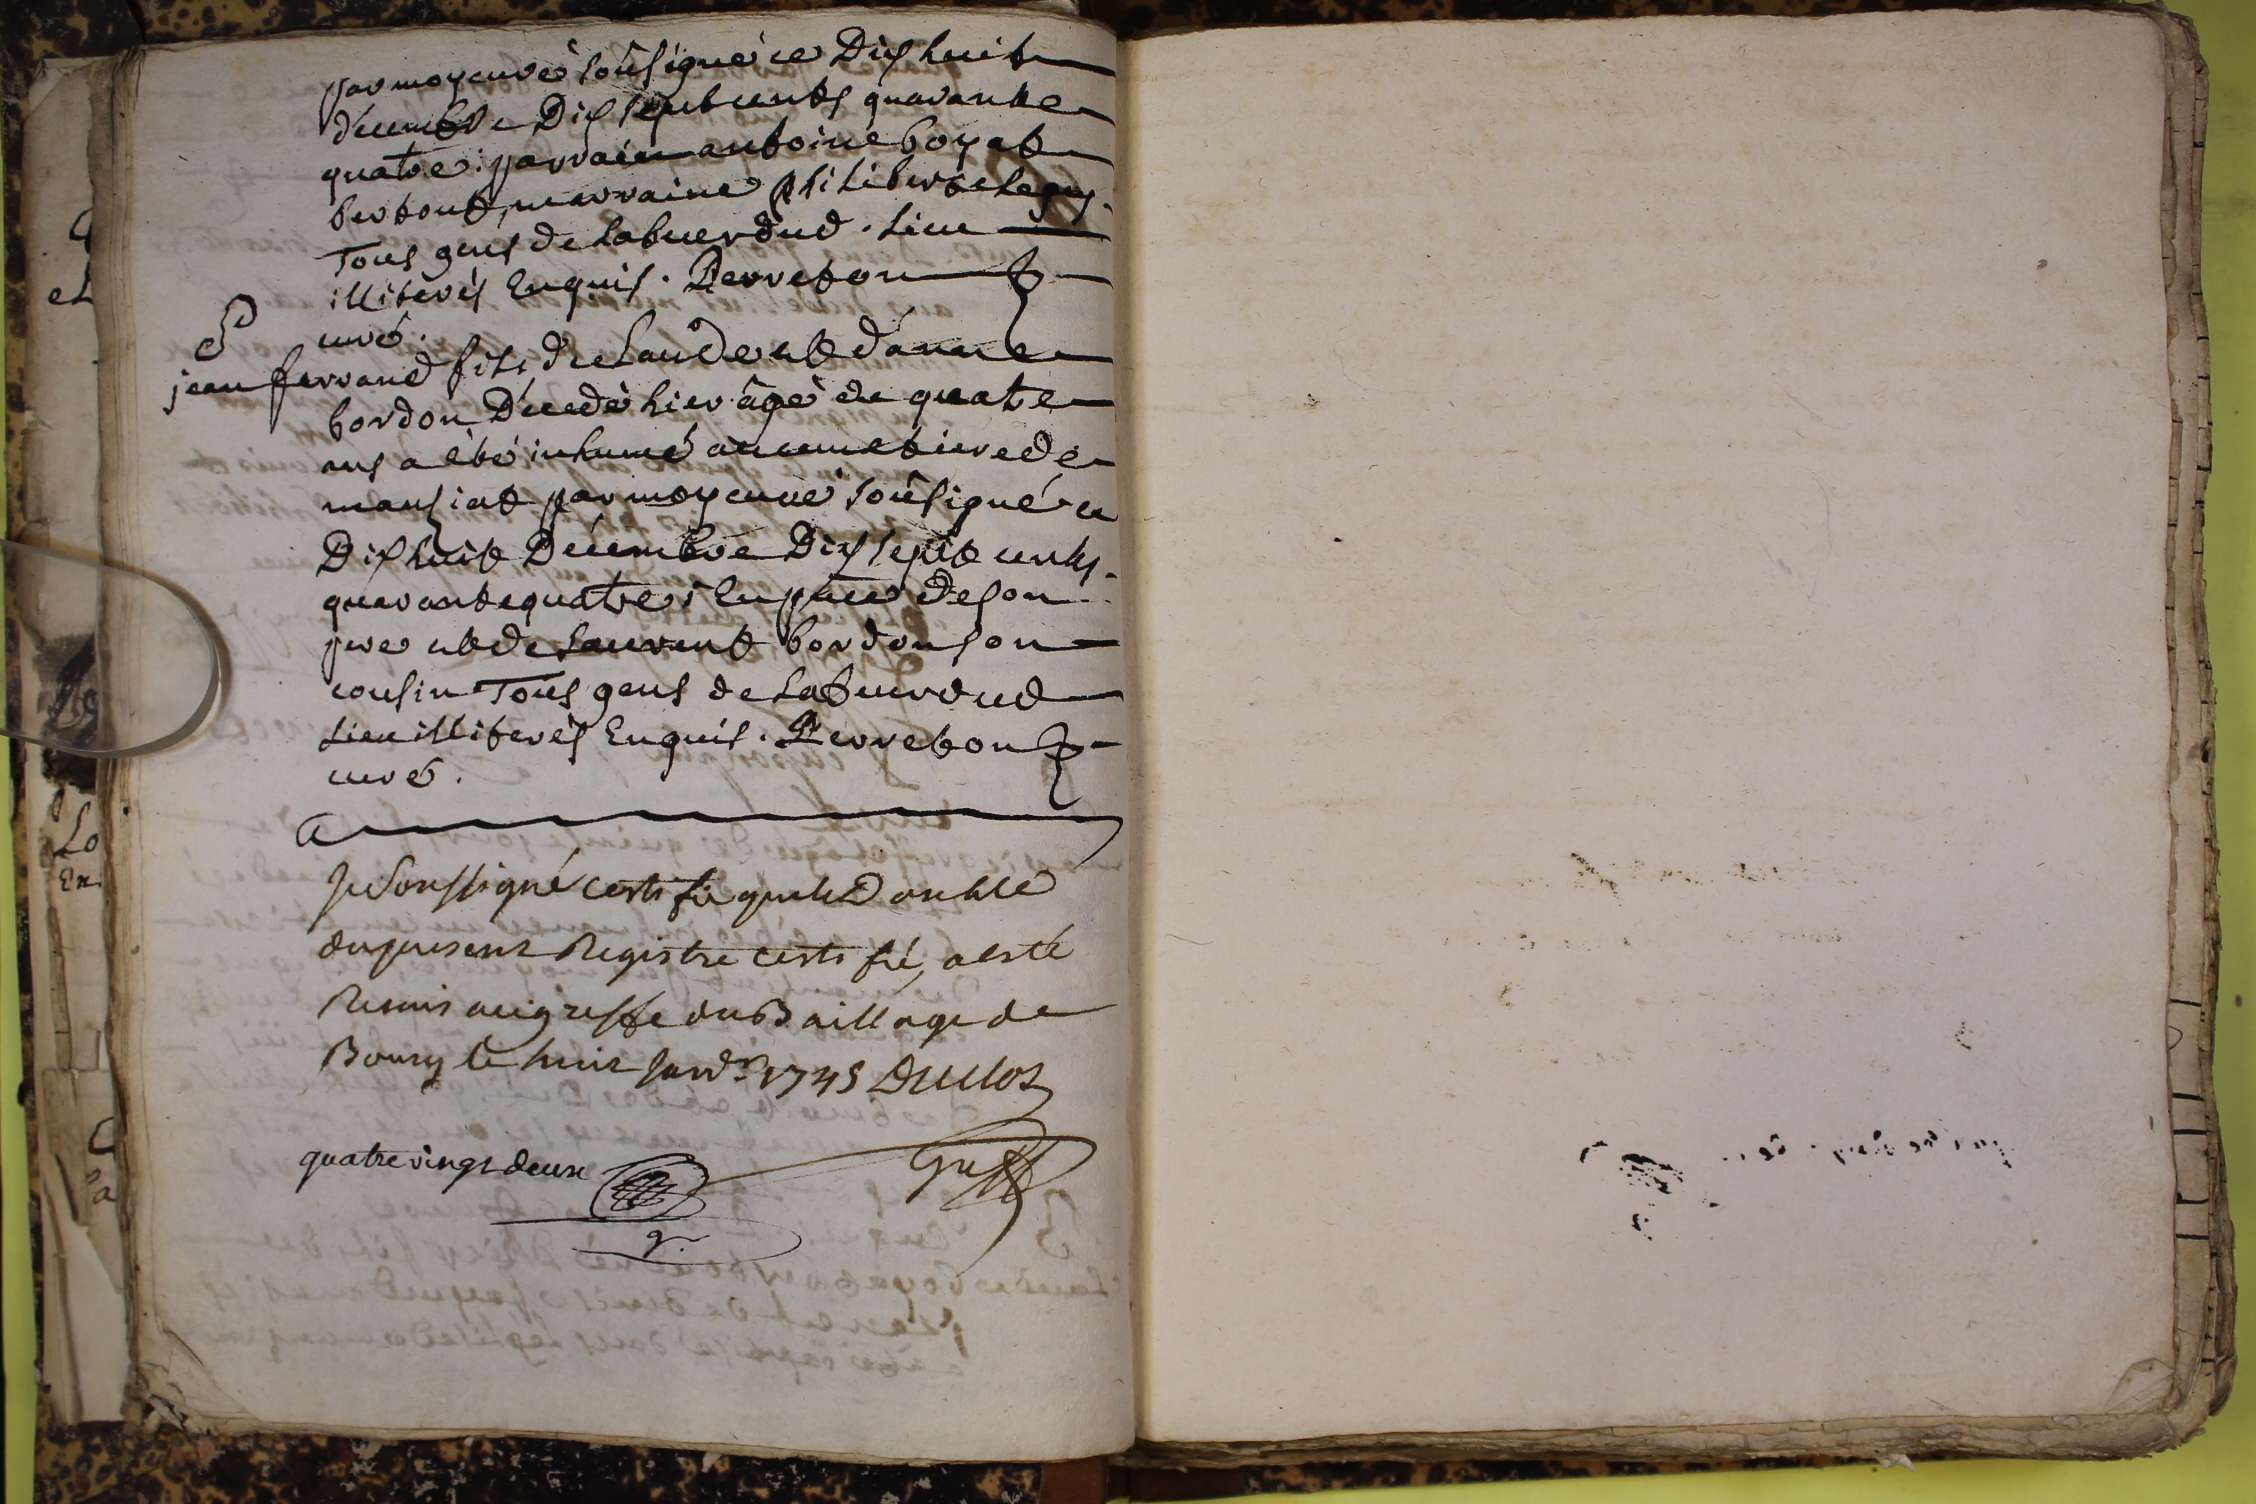 par moy curé sousigné ce Dix huit
décembre Dix sept cents quarante
quatre : parrain antoine boyat
bertout, marraine philiberte Leguy.
Tous gens de Labuerdud. Lieu
illiterés Enquis. Perreton
curé.
jean ferrand fils de Claude et d'anne
bordon Décedé hier âgé de quatre
ans a été inhumé au cimetiere de
manziat par moy curé sousigné ce
Dix huit Décembre Dix sept cents
quarante quatre : En pnce de son
pere et de Laurent bordon son
cousin Tous gens de Labuerdud
Lieu illiterés Enquis. Perreton
curé.
Je Soussigné certifie que le Double
du present Registre certifié, a esté
Remis au greffe du Baillage de
Bourg le huit Janvr 1745 Duclos
Greff
quatre vingt deux
Lo
En